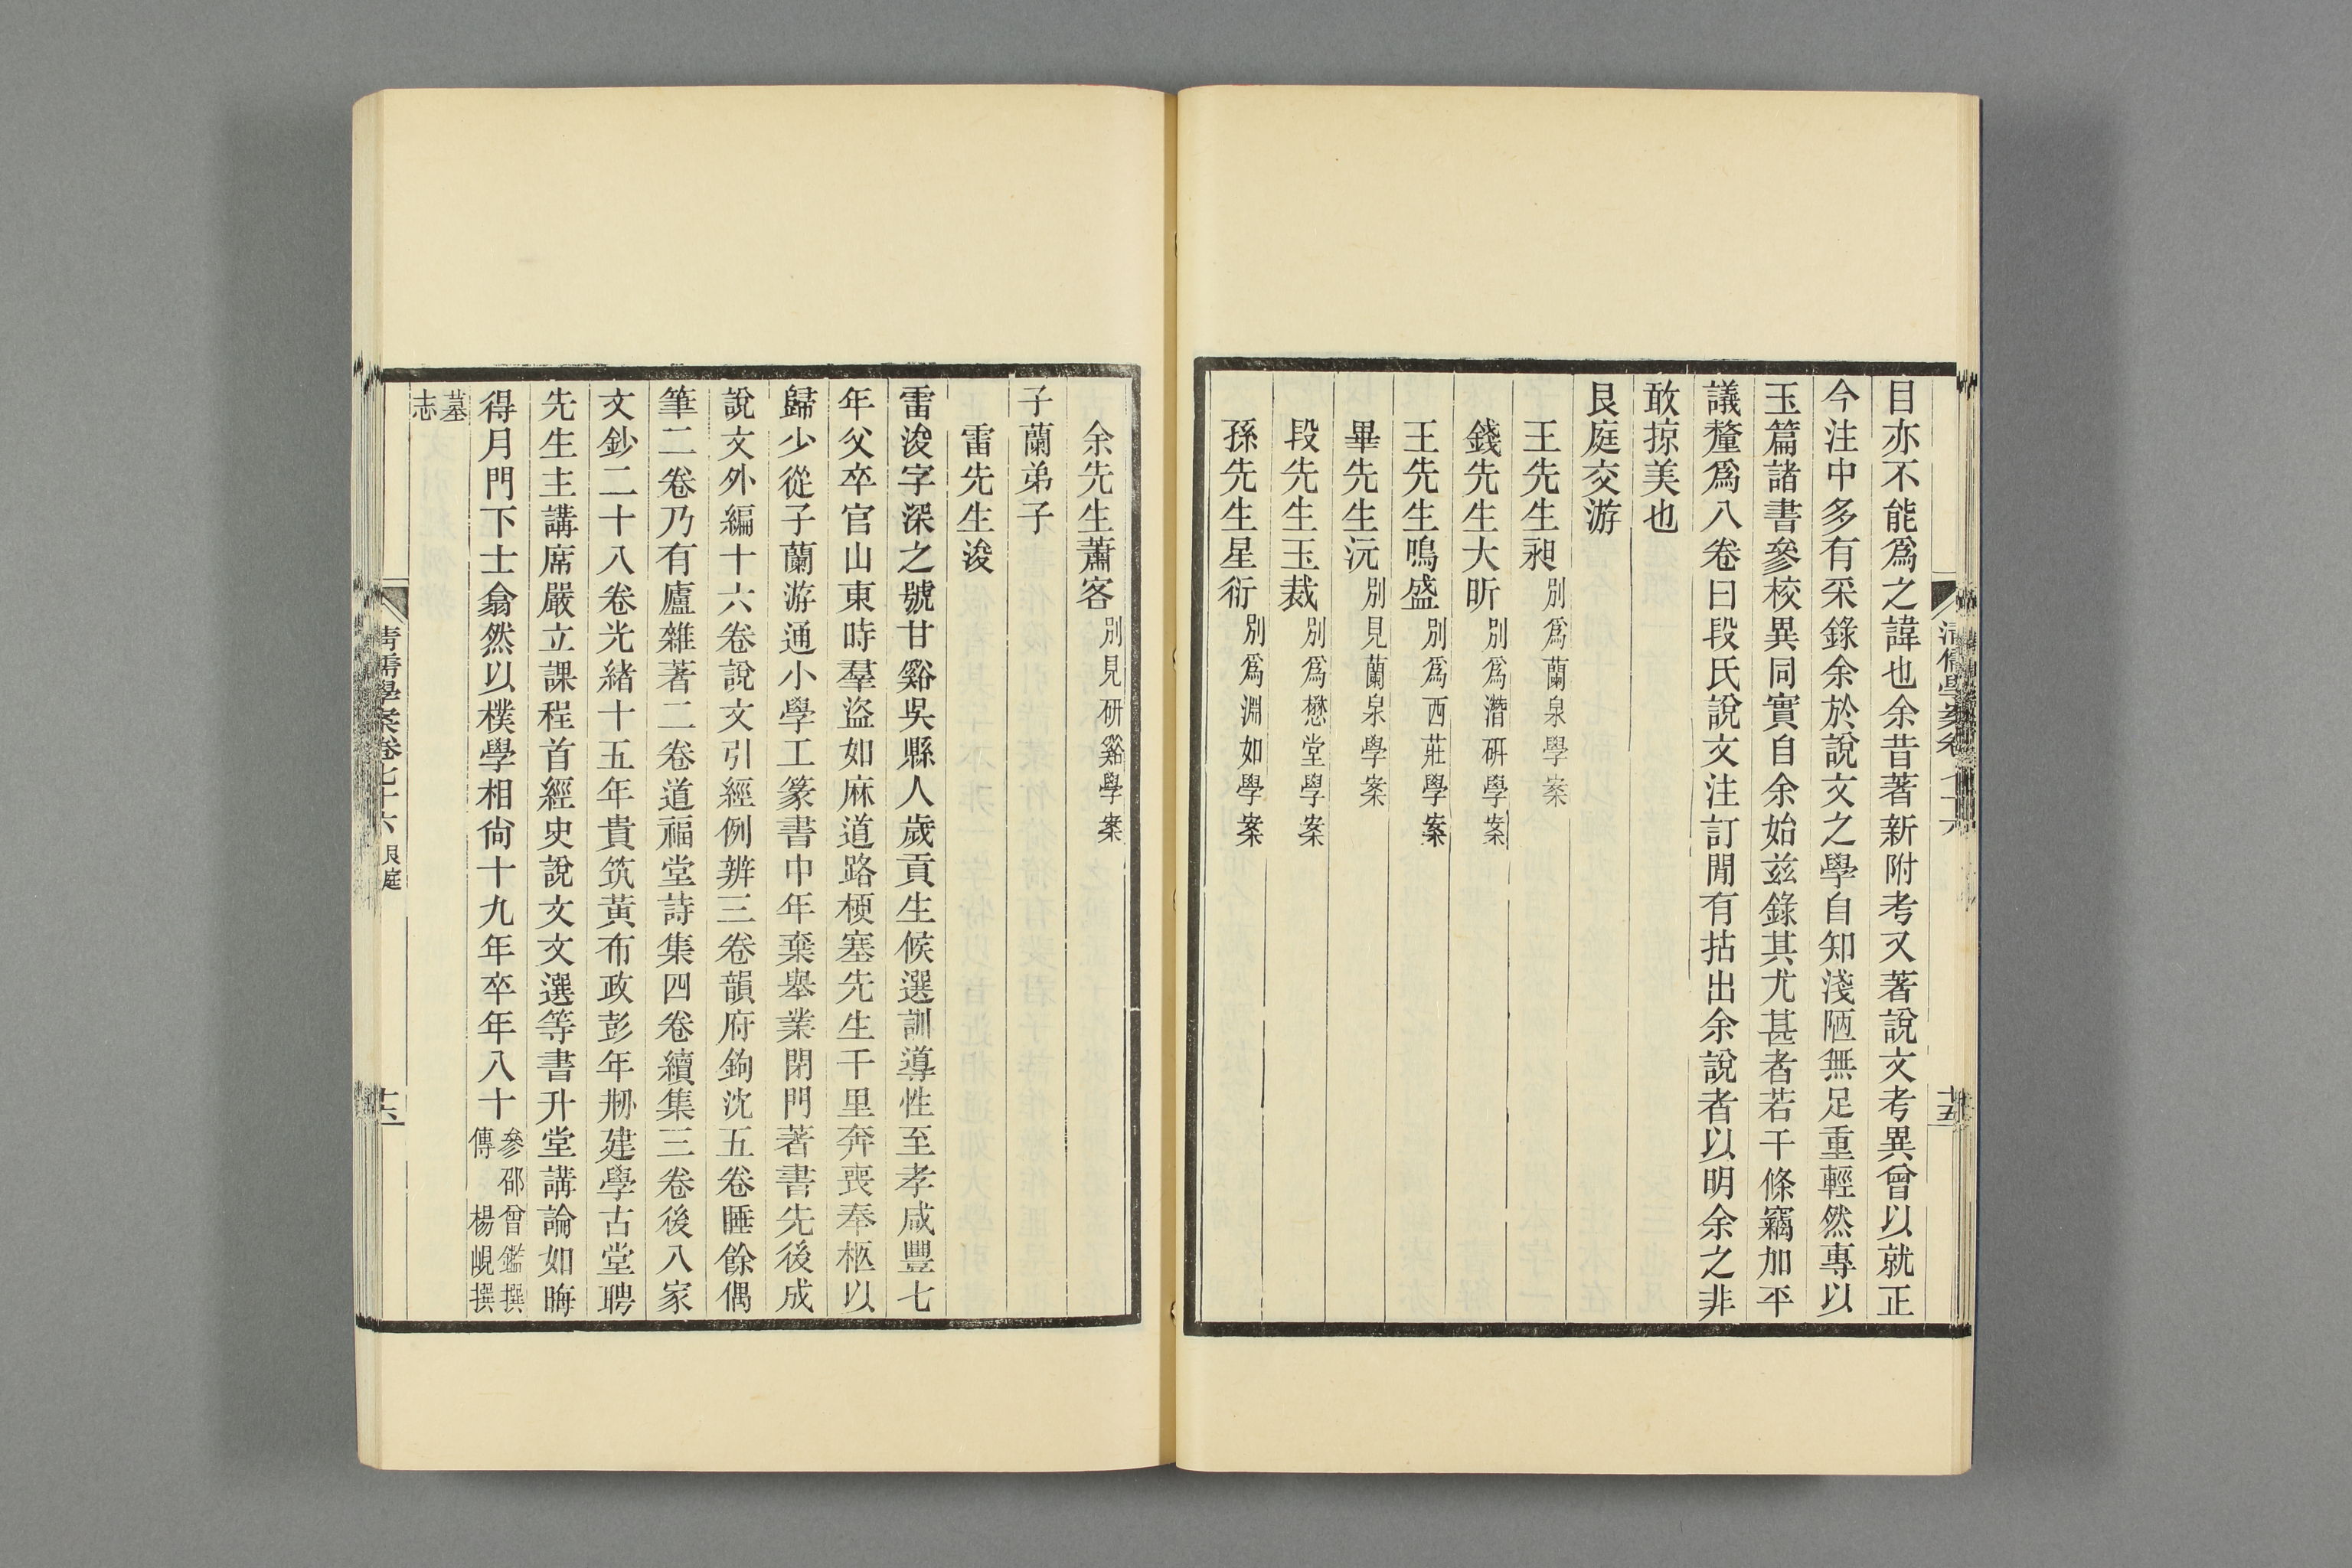 目亦不能爲之諱也余昔著新附考又著說文考異曾以就正
今注中多有采錄余於說文之學自知淺陋無足重輕然專以
玉篇諸書參校異同實自余始茲錄其尤甚者若干條竊加平
議釐爲八卷曰段氏說文注訂閒有拈出余說者以明余之非
敢掠美也
艮庭交游
王先生昶別爲蘭泉學案
錢先生大昕別爲潛研學案
王先生鳴盛別爲西莊學案
畢先生沅別見蘭泉學案
段先生玉裁別爲懋堂學案
孫先生星衍別爲淵如學案
余先生蕭客別見研谿學案
子蘭弟子
雷先生浚
雷浚字深之號甘谿吳縣人歲貢生候選訓導性至孝咸豐七
年父卒官山東時羣盜如麻道路梗塞先生千里奔喪奉柩以
歸少從子蘭游通小學工篆書中年棄舉業閉門著書先後成
說文外編十六卷說文引經例辨三卷韻府鉤沈五卷睡餘偶
筆二卷乃有廬雜著二卷道福堂詩集四卷續集三卷後八家
文鈔二十八卷光緒十五年貴筑黃布政彭年剏建學古堂聘
先生主講席嚴立課程首經史說文文選等書升堂講論如晦
得月門下士翕然以樸學相尙十九年卒年八十參邵曾鑑撰
傳楊峴撰
墓
志
清儒學案卷七十六 艮庭
十六